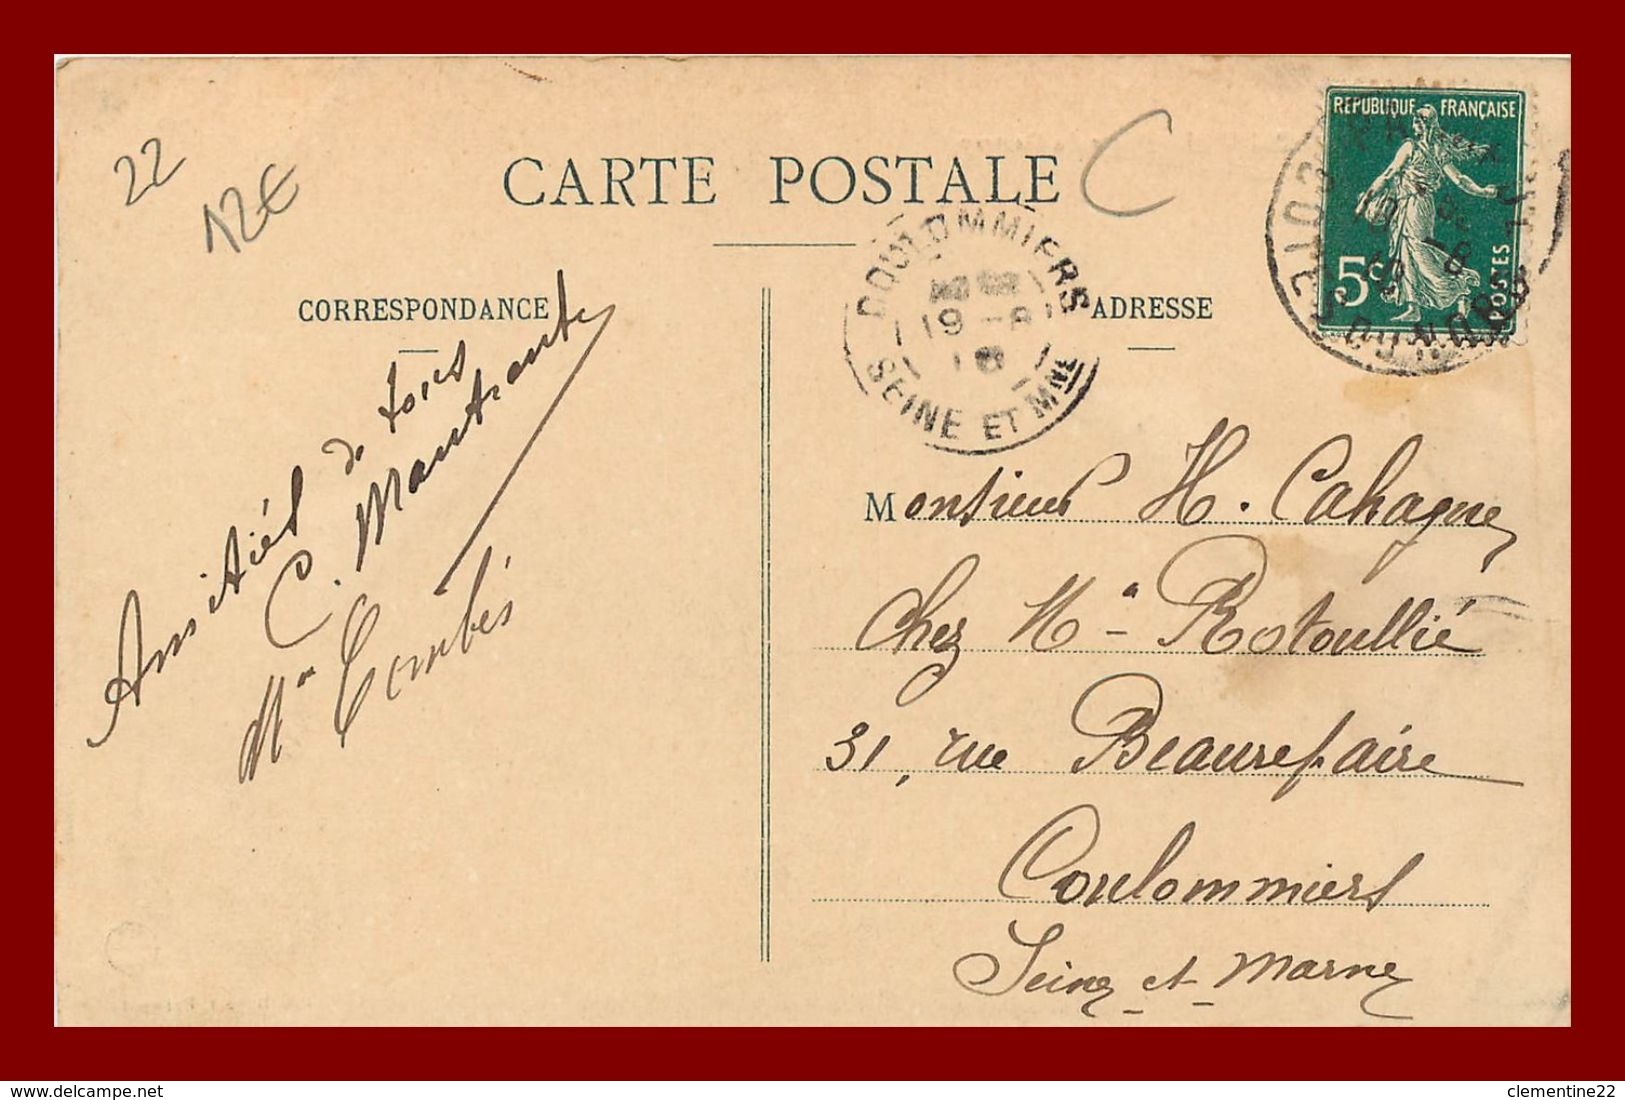 22
12€
CARTE POSTALE
C
RÉPUBLIQUE FRANÇAISE
5c
POSTES
COTES DU NORD
COULOMMIERS
19 - 8
SEINE ET MNE
CORRESPONDANCE
ADRESSE
Amitiés de tous
C.
Mme Combés
Monsieur H. Cahagne,
chez Me Rotoullié
31, rue Beaurepaire
Coulommiers
Seine et Marne
clementine22